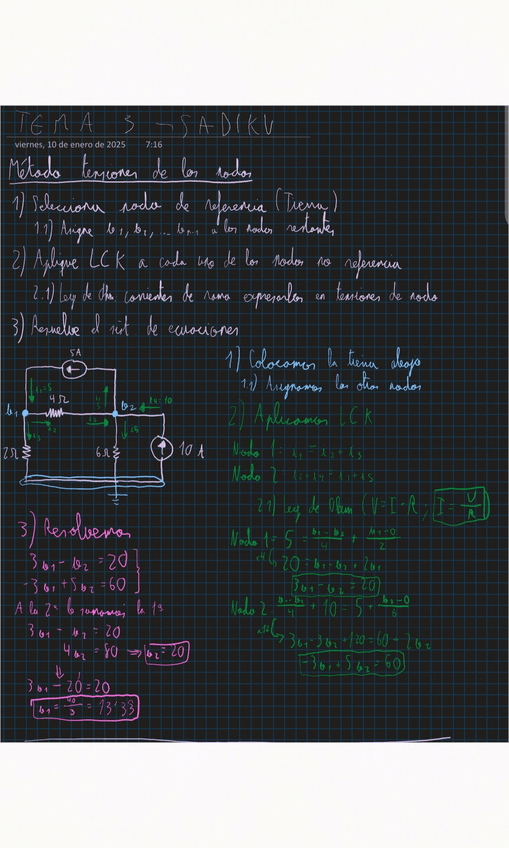 TEMA 3 → SADIKU
viernes, 10 de enero de 2025 7:16
Método tensiones de los nodos
1) Selecciona nodo de referencia (Tierra)
1.1) Asigne v₁, v₂, ... vₙ₋₁ a los nodos restantes
2) Aplique LCK a cada uno de los nodos no referencia
2.1) Ley de Ohm corrientes de rama expresarlas en tensiones de nodo
3) Resuelve el sist. de ecuaciones
5A
i₁=5
4Ω
v₁
v₂
i₄=10
i₂
i₃
2Ω
6Ω
10 A
1) Colocamos la tierra abajo
1.1) Asignamos los otros nodos
2) Aplicamos LCK
Nodo 1: i₁ = i₂ + i₃
Nodo 2: i₂ + i₄ = i₁ + i₅
2.1) Ley de Ohm (V = I · R ; I = V/R
Nodo 1 = 5 = (v₁ - v₂)/4 + (v₁ - 0)/2
×4 20 = v₁ - v₂ + 2v₁
3v₁ - v₂ = 20
Nodo 2: (v₁ - v₂)/4 + 10 = 5 + (v₂ - 0)/6
3v₁ - 3v₂ + 120 = 60 + 2v₂
-3v₁ + 5v₂ = 60
3) Resolvemos
3v₁ - v₂ = 20
-3v₁ + 5v₂ = 60
A la 2ª le sumamos la 1ª
3v₁ - v₂ = 20
4v₂ = 80 ⇒ v₂ = 20
3v₁ - 20 = 20
v₁ = 40/3 = 13'33